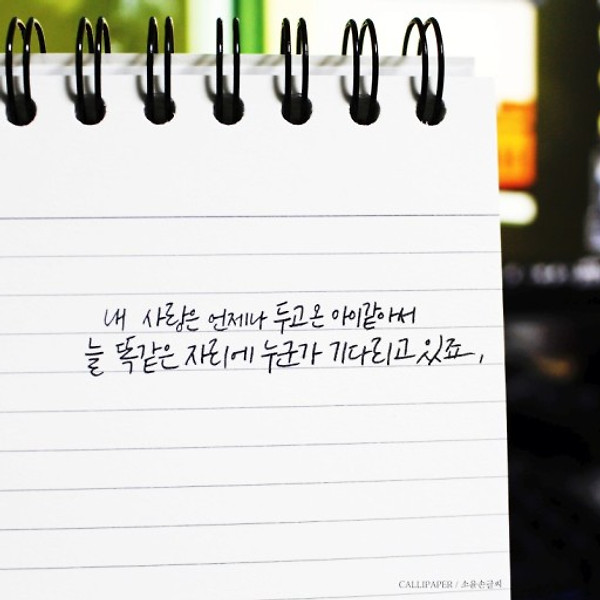 내 사랑은 언제나 두고온 아이같아서
늘 똑같은 자리에 누군가 기다리고 있죠,
CALLIPAPER / 소율손글씨